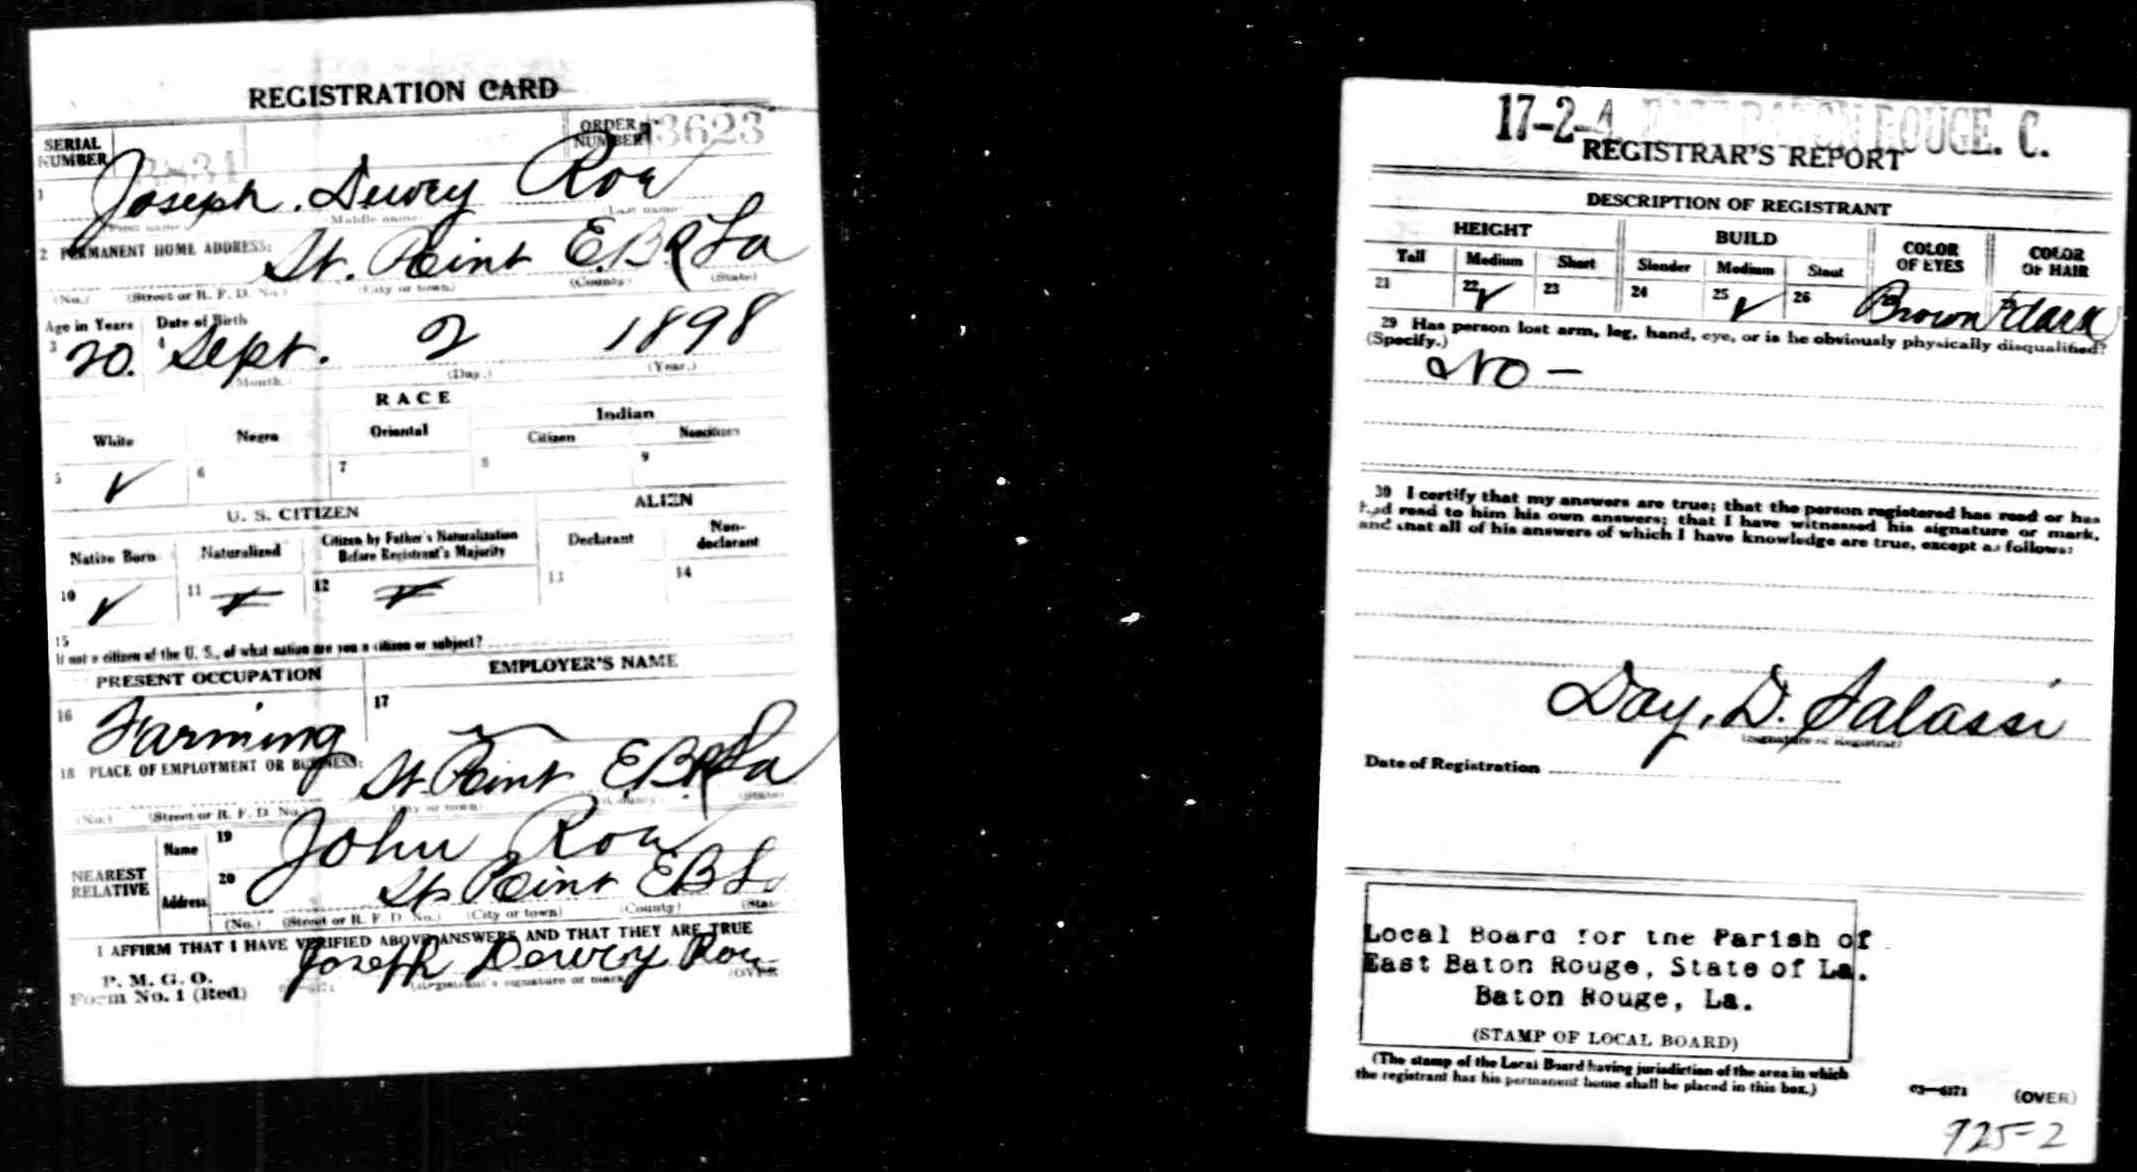 REGISTRATION CARD
SERIAL NUMBER
ORDER NUMBER 3623
1 Joseph. Dewey Roe
(First name) (Middle name) (Last name)
2 PERMANENT HOME ADDRESS: St. Point E.B.R La
(No.) (Street or R. F. D. No.) (City or town) (County) (State)
Age in Years Date of Birth
3 20. 4 Sept. 2 1898
Month. (Day.) (Year.)
RACE
White Negro Oriental Indian
Citizen Noncitizen
5 ✓ 6 7 8 9
U. S. CITIZEN ALIEN
Native Born Naturalized Citizen by Father's Naturalization Before Registrant's Majority Declarant Non-declarant
10 ✓ 11 12 13 14
15 If not a citizen of the U. S., of what nation are you a citizen or subject?
PRESENT OCCUPATION EMPLOYER'S NAME
16 Farming 17
18 PLACE OF EMPLOYMENT OR BUSINESS: St. Point E.B.R La
(No.) (Street or R. F. D. No.) (City or town) (County) (State)
NEAREST RELATIVE
Name 19 John Roe
Address 20 St Point E B L
(No.) (Street or R. F. D. No.) (City or town) (County) (State)
I AFFIRM THAT I HAVE VERIFIED ABOVE ANSWERS AND THAT THEY ARE TRUE
P. M. G. O.
Form No. 1 (Red) Joseph Dewey Roe
(Registrant's signature or mark) (OVER)
17-2-4 EAST BATON ROUGE. C.
REGISTRAR'S REPORT
DESCRIPTION OF REGISTRANT
HEIGHT BUILD COLOR OF EYES COLOR OF HAIR
Tall Medium Short Slender Medium Stout
21 22 ✓ 23 24 25 ✓ 26 Brown dark
29 Has person lost arm, leg, hand, eye, or is he obviously physically disqualified?
(Specify.) No -
30 I certify that my answers are true; that the person registered has read or has
had read to him his own answers; that I have witnessed his signature or mark,
and that all of his answers of which I have knowledge are true, except as follows:
Day. D. Salassi
(Signature of Registrar)
Date of Registration
Local Board for the Parish of
East Baton Rouge, State of La.
Baton Rouge, La.
(STAMP OF LOCAL BOARD)
(The stamp of the Local Board having jurisdiction of the area in which
the registrant has his permanent home shall be placed in this box.)
03—6171 (OVER)
725-2